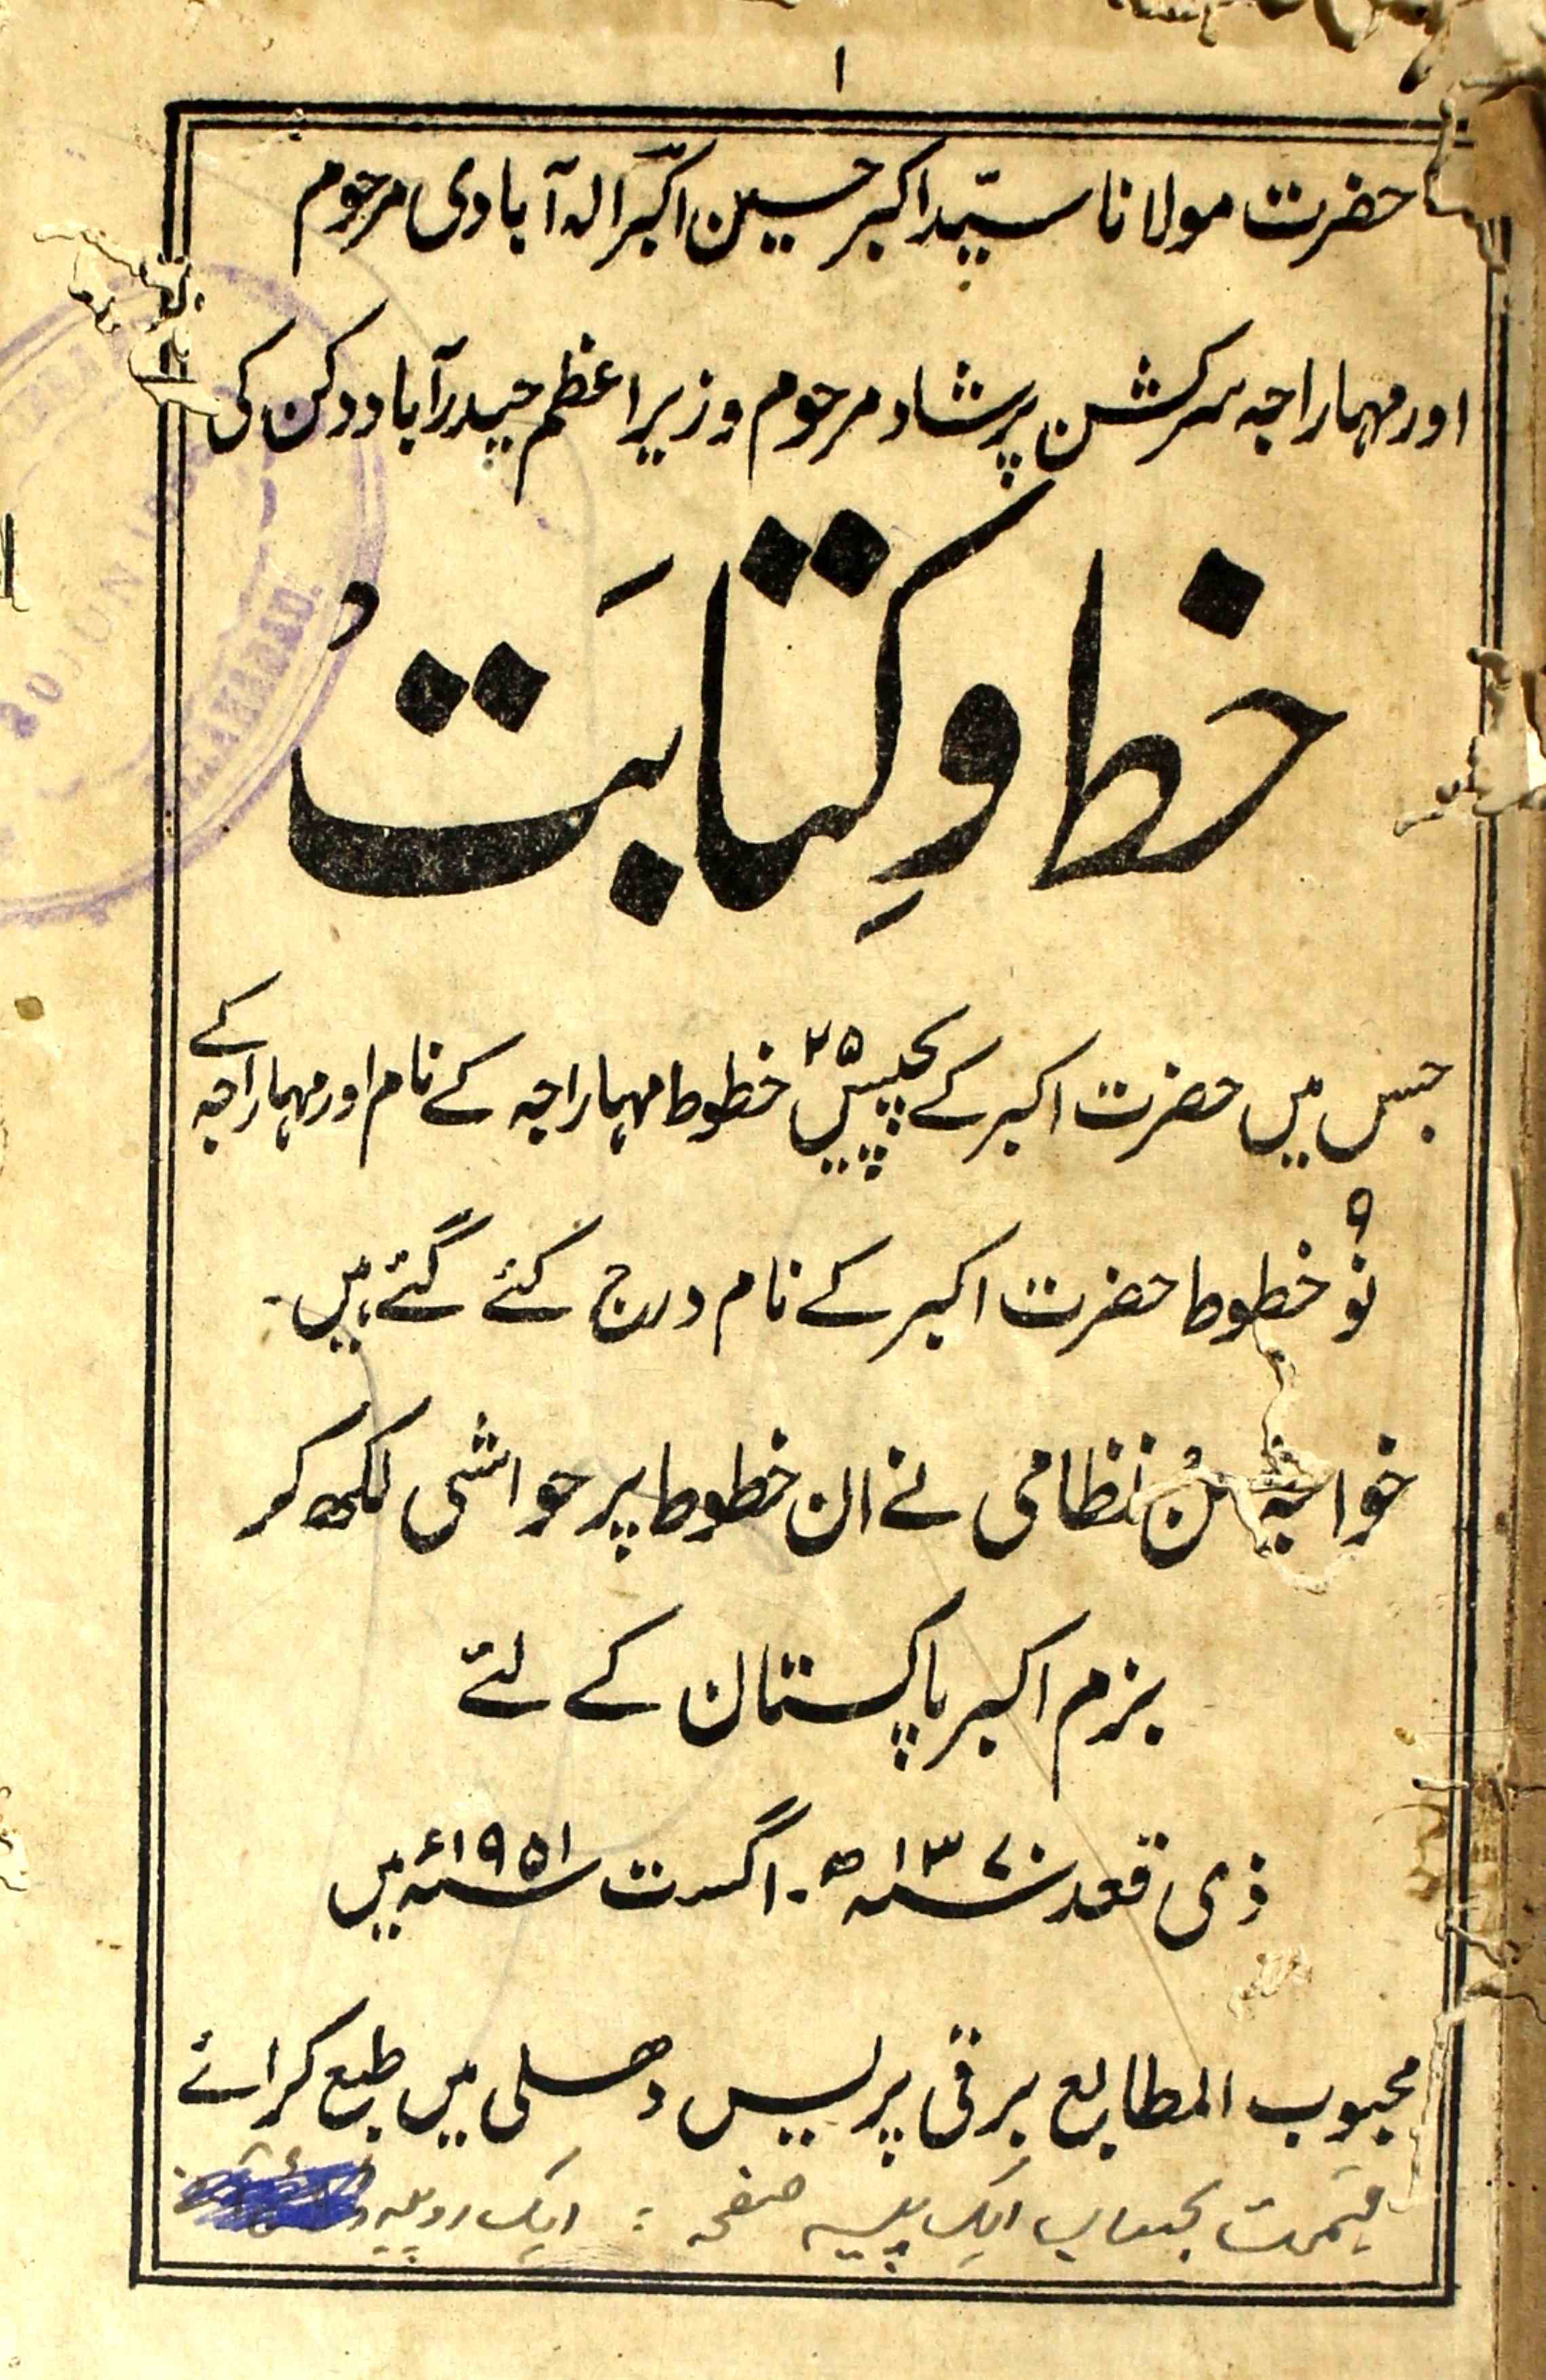 ۱
حضرت مولانا سیّد اکبر حسین اکبرؔ الہ آبادی مرحوم
اور مہاراجہ سرکشن پرشاد مرحوم وزیر اعظم حیدرآباد دکن کی
خط وکِتابَتْ
جس میں حضرت اکبر کے پچیس ۲۵ خطوط مہاراجہ کے نام اور مہاراجہ کے
نو ۹ خطوط حضرت اکبر کے نام درج کئے گئے ہیں۔
خواجہ حسن نظامی نے ان خطوط پر حواشی لکھ کر
بزم اکبر پاکستان کے لئے
ذی قعد ۱۳۷۰ھ۔ اگست ۱۹۵۱ء میں
محبوب المطابع برقی پریس دھلی میں طبع کرائے
قیمت بحساب ایک پیسہ صفحہ : ایک روپیہ